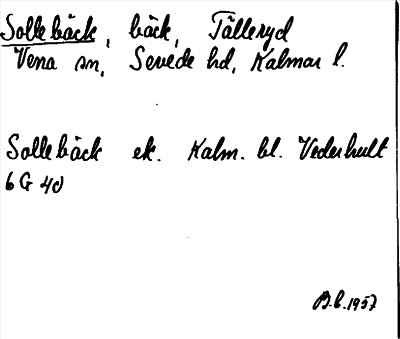 Sollebäck, bäck, Tälleryd
Vena sn, Sevede hd, Kalmar l.
Sollebäck ek. Kalm. bl. Vederhult
6 G 4d
B.b. 1957